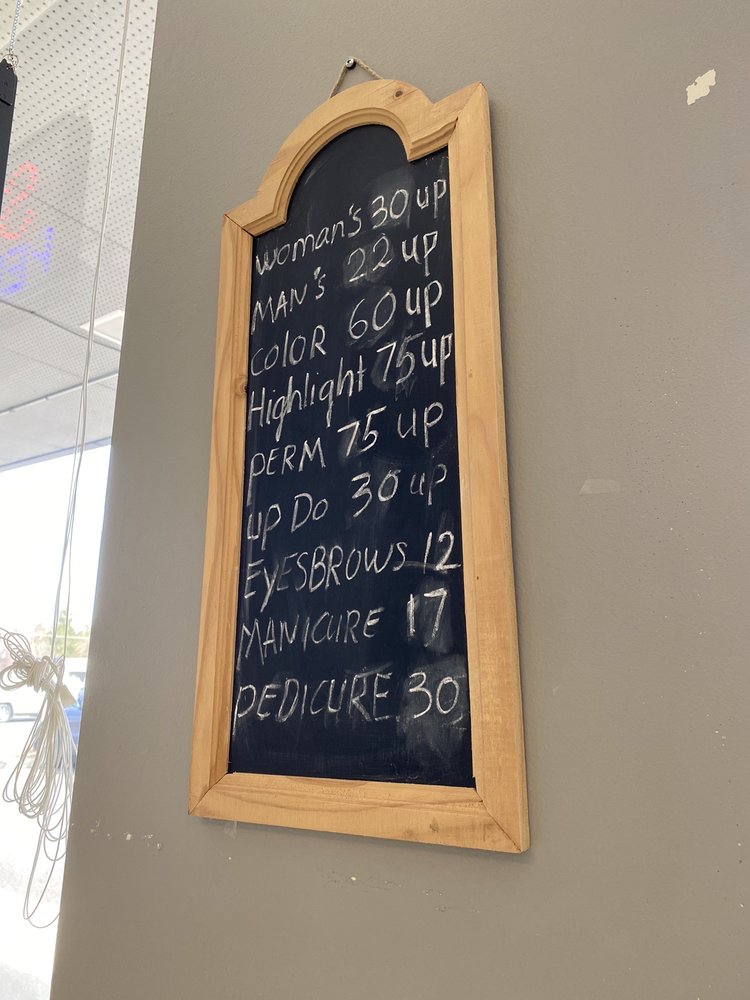 woman's 30 up
MAN's 22 up
COLOR 60 up
Highlight 75 up
PERM 75 up
up Do 30 up
EYESBROWS 12
MANICURE 17
PEDICURE 30